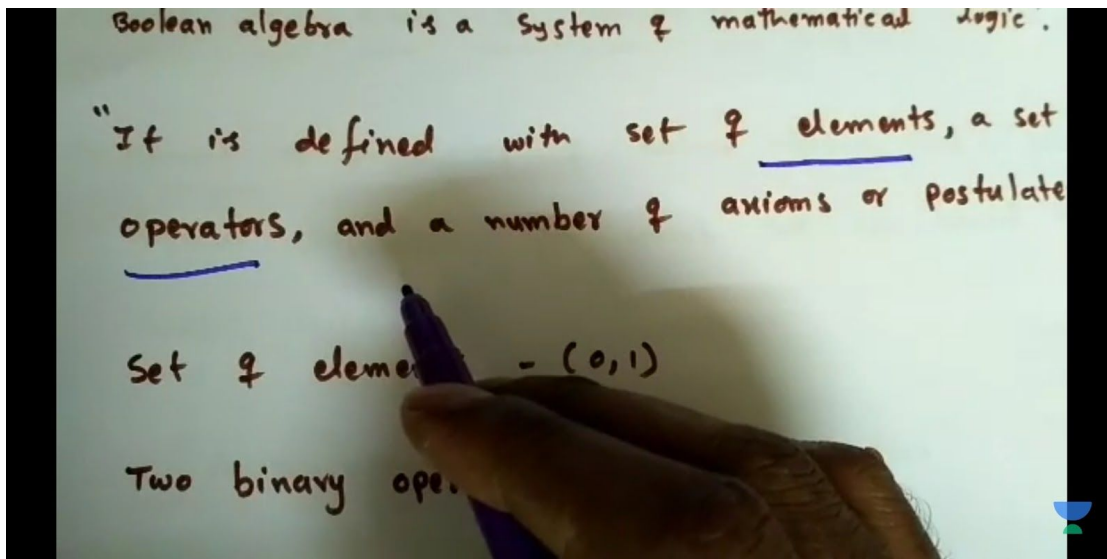 Boolean algebra is a system of mathematical logic.
"It is defined with set of elements, a set
operators, and a number of axioms or postulate
Set of eleme - (0,1)
Two binary ope